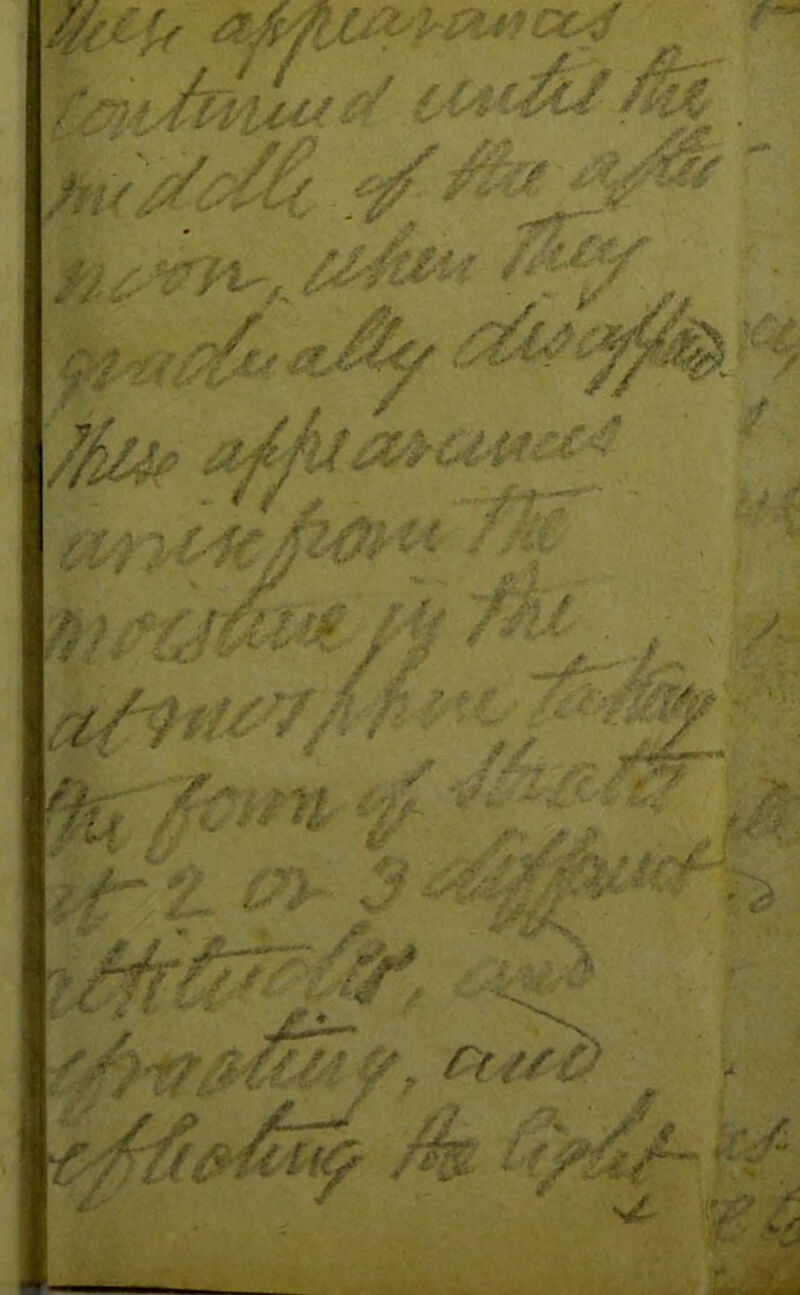 These appearances
continued until the
middle of the after-
noon, when they
gradually disapp
These appearances
arise from the
moisture in the
atmosphere taking
the form of
at 2 or 3 different
altitudes, and
and
reflecting the light